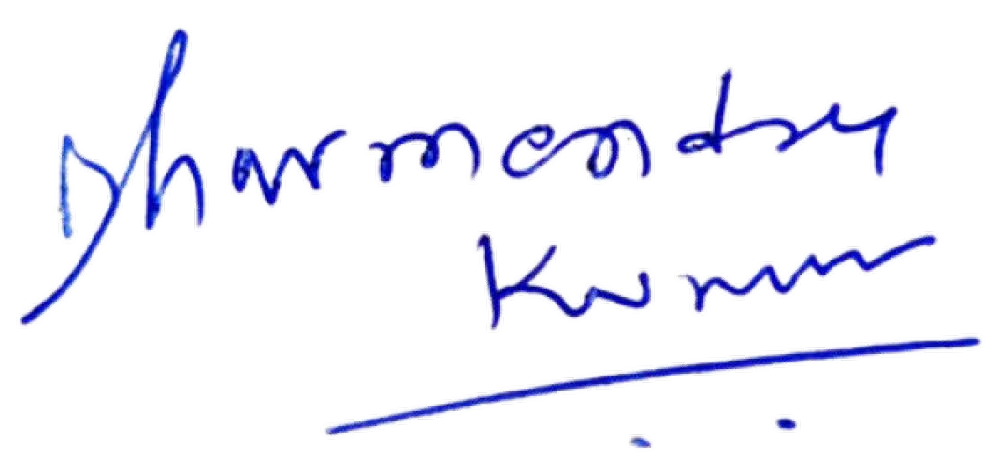 Dharmendra
Kumar